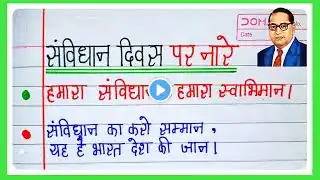 DOMS
Date
संविधान दिवस पर नारे
हमारा संविधान हमारा स्वाभिमान।
संविधान का करो सम्मान,
यह है भारत देश की जान।